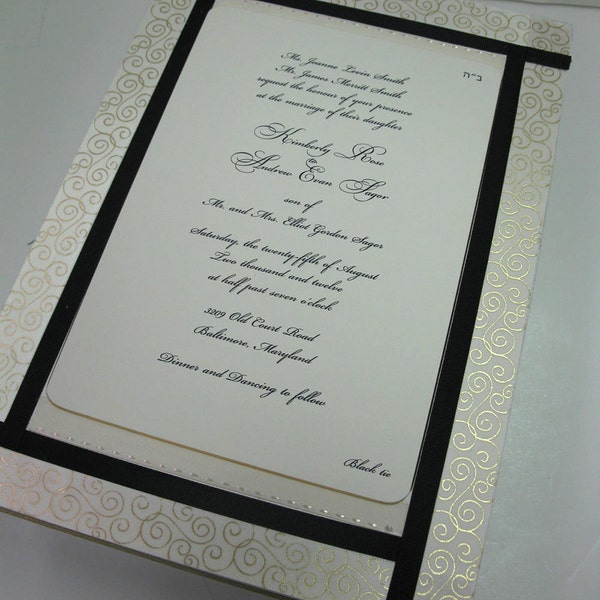 ב״ה
Ms. Joanne Levin Smith
Mr. James Merritt Smith
request the honour of your presence
at the marriage of their daughter
Kimberly Rose
to
Andrew Evan Sagor
son of
Mr. and Mrs. Elliot Gordon Sagor
Saturday, the twenty-fifth of August
Two thousand and twelve
at half past seven o'clock
3209 Old Court Road
Baltimore, Maryland
Dinner and Dancing to follow
Black tie